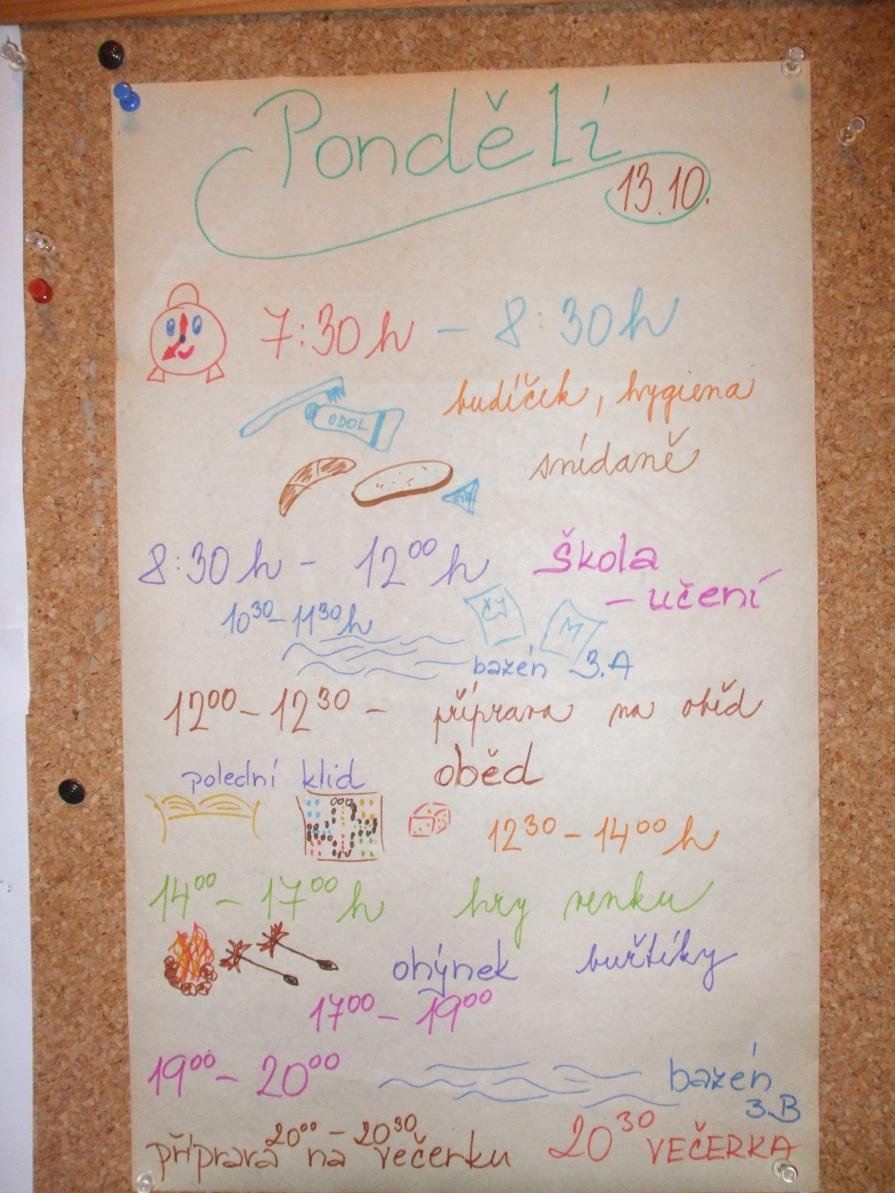 Pondělí
13.10.
7:30 h – 8:30 h
budíček, hygiena
ODOL
snídaně
8:30 h – 12⁰⁰ h Škola
– učení
10³⁰–11³⁰ h
ČJ
M
bazén 3.A
12⁰⁰–12³⁰ – příprava na oběd
polední klid oběd
12³⁰–14⁰⁰ h
14⁰⁰–17⁰⁰ h hry venku
ohýnek buřtíky
17⁰⁰–19⁰⁰
19⁰⁰–20⁰⁰ bazén
3.B
20⁰⁰–20³⁰ 20³⁰ VEČERKA
příprava na večerku